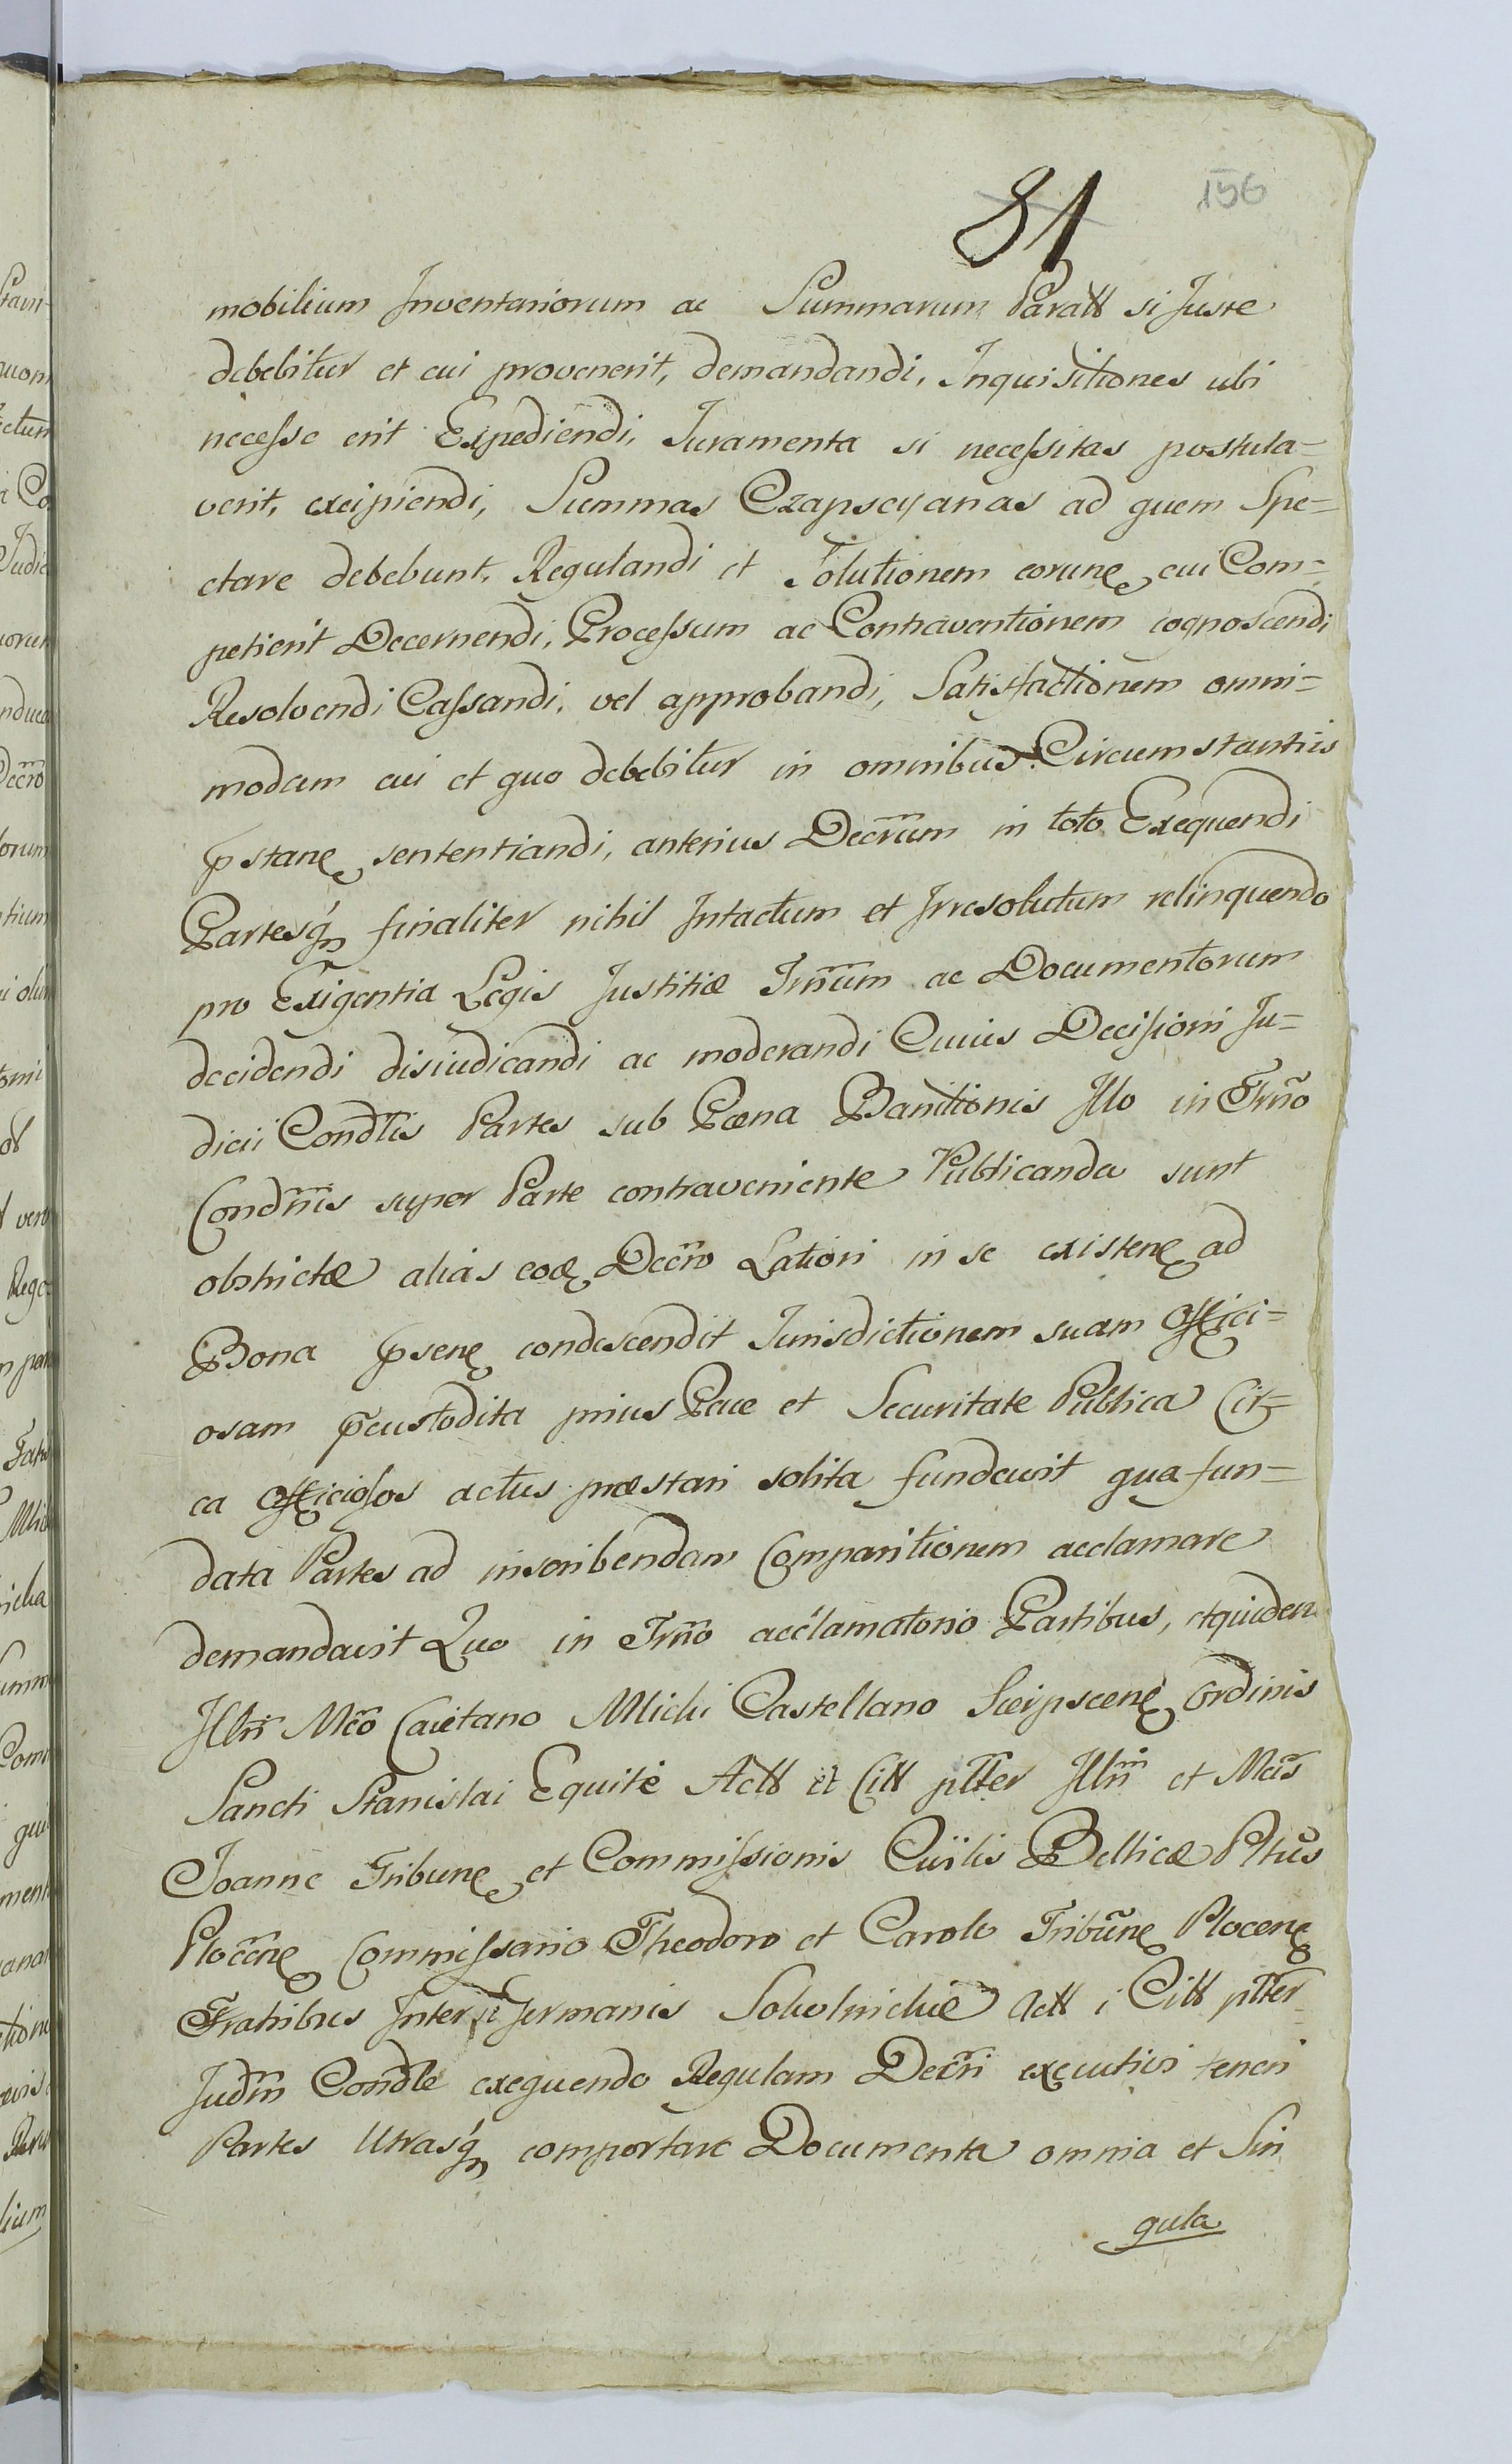 81 156
mobilium Inventariorum ac Summarum Paratt si Juste
debebitur et cui provenerit, demandandi, Inquisitiones ubi
necesse erit Expediendi, Juramenta si necessitas postula=
verit, excipiendi, Summas Czapscyanas ad quem Spe=
ctare debebunt, Regulandi et Solutionem eorune cui Com=
petierit Decernendi, Processum ac Contraventionem cognoscendi
Resolvendi Cassandi, vel approbandi, Satisfactionem omni=
modam cui et quo debebitur in omnibus Circumstantiis
pstane sententiandi, anterius Decrum in toto Exequendi
Partesq finaliter nihil Intactum et Irresolutum relinquendo
pro Exigentia Legis Justitiæ Jrnum ac Documentorum
decidendi disiudicandi ac moderandi Cuius Decisioni Ju=
dicii Condlis Partes sub Pœna Banitionis Illo in Trno
Condnis super Parte contraveniente Publicanda sunt
obstrictæ alias eoq Decro Lationi in se existene ad
Bona psene condescendit Jurisdictionem suam Offici=
osam pcustodita prius Pace et Securitate Publica Cir=
ca Officiosos actus præstari solita fundavit qua fun=
data Partes ad inscribendam Comparitionem acclamare
demandavit Quo in Trno acclamatorio Partibus, etquidem
Illn Mco Caietano Mlicki Castellano Scierpscene Ordinis
Sancti Stanislai Equite Actt et Citt plter Illm et Mcis
Joanne Tribune et Commissionis Civilis Bellicæ Pltus
Plocene Commissario Theodoro et Carolo Tribune Plocene
Fratribus Inter se Germanis Sokolnickie Actt i Citt plter
Judm Condle exequendo Regulam Decri executivi teneri
Partes Utrasq comportare Documenta omnia et Sin
gula